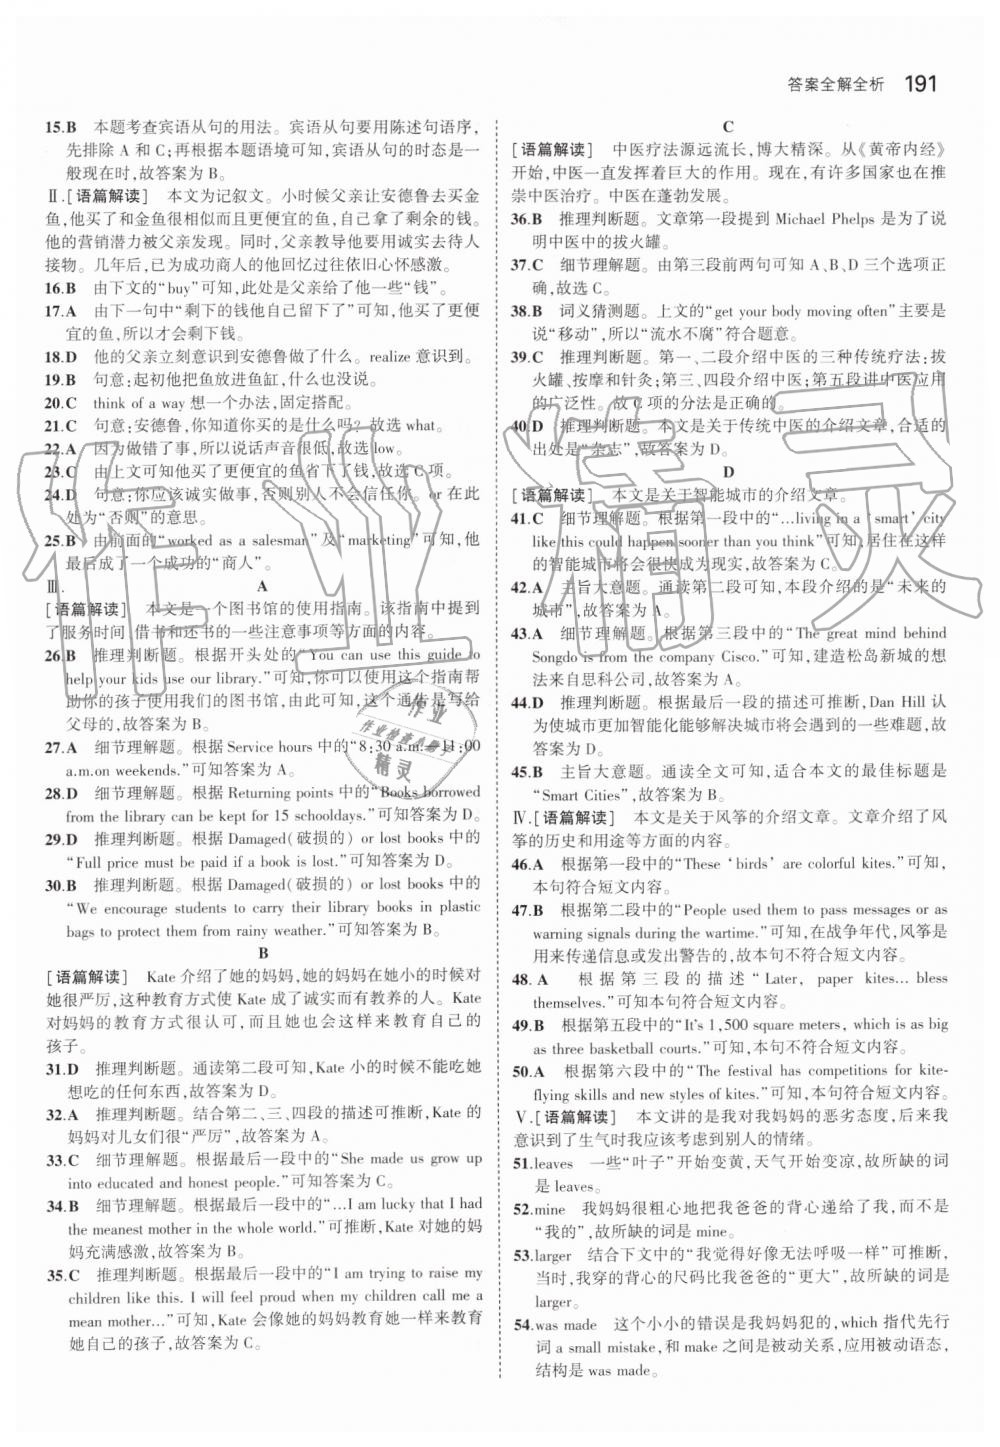 答案全解全析 191
15.B 本题考查宾语从句的用法。宾语从句要用陈述句语序,
先排除 A 和 C;再根据本题语境可知,宾语从句的时态是一
般现在时,故答案为 B。
Ⅱ.[语篇解读] 本文为记叙文。小时候父亲让安德鲁去买金
鱼,他买了和金鱼很相似而且更便宜的鱼,自己拿了剩余的钱。
他的营销潜力被父亲发现。同时,父亲教导他要用诚实去待人
接物。几年后,已为成功商人的他回忆过往依旧心怀感激。
16.B 由下文的“buy”可知,此处是父亲给了他一些“钱”。
17.A 由下一句中“剩下的钱他自己留下了”可知,他买了更便
宜的鱼,所以才会剩下钱。
18.D 他的父亲立刻意识到安德鲁做了什么。realize 意识到。
19.B 句意:起初他把鱼放进鱼缸,什么也没说。
20.C think of a way 想一个办法,固定搭配。
21.C 句意:安德鲁,你知道你买的是什么吗? 故选 what。
22.A 因为做错了事,所以说话声音很低,故选 low。
23.C 由上文可知他买了更便宜的鱼省下了钱,故选 C 项。
24.D 句意:你应该诚实做事,否则别人不会信任你。or 在此
处为“否则”的意思。
25.B 由前面的“worked as a salesman”及“marketing”可知,他
最后成了一个成功的“商人”。
Ⅲ. A
[语篇解读] 本文是一个图书馆的使用指南。该指南中提到
了服务时间、借书和还书的一些注意事项等方面的内容。
26.B 推理判断题。根据开头处的“You can use this guide to
help your kids use our library.”可知,你可以使用这个指南帮
助你的孩子使用我们的图书馆,由此可知,这个通告是写给
父母的,故答案为 B。
27.A 细节理解题。根据 Service hours 中的“8:30 a.m.—11:00
a.m. weekends.”可知答案为 A。
28.D 细节理解题。根据 Returning points 中的“Books borrowed
from the library can be kept for 15 schooldays.”可知答案为 D。
29.D 推理判断题。根据 Damaged(破损的) or lost books 中的
“Full price must be paid if a book is lost.”可知答案为 D。
30.B 推理判断题。根据 Damaged(破损的) or lost books 中的
“We encourage students to carry their library books in plastic
bags to protect them from rainy weather.”可知答案为 B。
B
[语篇解读] Kate 介绍了她的妈妈,她的妈妈在她小的时候对
她很严厉,这种教育方式使 Kate 成了诚实而有教养的人。Kate
对妈妈的教育方式很认可,而且她也会这样来教育自己的
孩子。
31.D 推理判断题。通读第二段可知,Kate 小的时候不能吃她
想吃的任何东西,故答案为 D。
32.A 推理判断题。结合第二、三、四段的描述可推断,Kate 的
妈妈对儿女们很“严厉”,故答案为 A。
33.C 细节理解题。根据最后一段中的“She made us grow up
into educated and honest people.”可知答案为 C。
34.B 细节理解题。根据最后一段中的“…I am lucky that I had
the meanest mother in the whole world.”可推断,Kate 对她的妈
妈充满感激,故答案为 B。
35.C 推理判断题。根据最后一段中的“I am trying to raise my
children like this. I will feel proud when my children call me a
mean mother…”可知,Kate 会像她的妈妈教育她一样来教育
她自己的孩子,故答案为 C。
C
[语篇解读] 中医疗法源远流长,博大精深。从《黄帝内经》
开始,中医一直发挥着巨大的作用。现在,有许多国家也在推
崇中医治疗。中医在蓬勃发展。
36.B 推理判断题。文章第一段提到 Michael Phelps 是为了说
明中医中的拔火罐。
37.C 细节理解题。由第三段前两句可知 A、B、D 三个选项正
确,故选 C。
38.B 词义猜测题。上文的“get your body moving often”主要是
说“移动”,所以“流水不腐”符合题意。
39.C 推理判断题。第一、二段介绍中医的三种传统疗法:拔
火罐、按摩和针灸;第三、四段介绍中医;第五段讲中医应用
的广泛性。故 C 项的分法是正确的。
40.D 推理判断题。本文是关于传统中医的介绍文章,合适的
出处是“杂志”,故答案为 D。
D
[语篇解读] 本文是关于智能城市的介绍文章。
41.C 细节理解题。根据第一段中的“…living in a ‘smart’ city
like this could happen sooner than you think”可知,居住在这样
的智能城市将会很快成为现实,故答案为 C。
42.A 主旨大意题。通读第二段可知,本段介绍的是“未来的
城市”,故答案为 A。
43.A 细节理解题。根据第三段中的“The great mind behind
Songdo is from the company Cisco.”可知,建造松岛新城的想
法来自思科公司,故答案为 A。
44.D 推理判断题。根据最后一段的描述可推断,Dan Hill 认
为使城市更加智能化能够解决城市将会遇到的一些难题,故
答案为 D。
45.B 主旨大意题。通读全文可知,适合本文的最佳标题是
“Smart Cities”,故答案为 B。
Ⅳ.[语篇解读] 本文是关于风筝的介绍文章。文章介绍了风
筝的历史和用途等方面的内容。
46.A 根据第一段中的“These ‘birds’ are colorful kites.”可知,
本句符合短文内容。
47.B 根据第二段中的“People used them to pass messages or as
warning signals during the wartime.”可知,在战争年代,风筝是
用来传递信息或发出警告的,故本句不符合短文内容。
48.A 根据第三段的描述“Later, paper kites… bless
themselves.”可知本句符合短文内容。
49.B 根据第五段中的“It’s 1,500 square meters, which is as big
as three basketball courts.”可知,本句不符合短文内容。
50.A 根据第六段中的“The festival has competitions for kite-
flying skills and new styles of kites.”可知,本句符合短文内容。
Ⅴ.[语篇解读] 本文讲的是我对我妈妈的恶劣态度,后来我
意识到了生气时我应该考虑到别人的情绪。
51.leaves 一些“叶子”开始变黄,天气开始变凉,故所缺的词
是 leaves。
52.mine 我妈妈很粗心地把我爸爸的背心递给了我,而不是
“我的”,故所缺的词是 mine。
53.larger 结合下文中的“我觉得好像无法呼吸一样”可推断,
当时,我穿的背心的尺码比我爸爸的“更大”,故所缺的词是
larger。
54.was made 这个小小的错误是我妈妈犯的,which 指代先行
词 a small mistake,和 make 之间是被动关系,应用被动语态,
结构是 was made。
作业精灵
作业
作业检查小助手
精灵